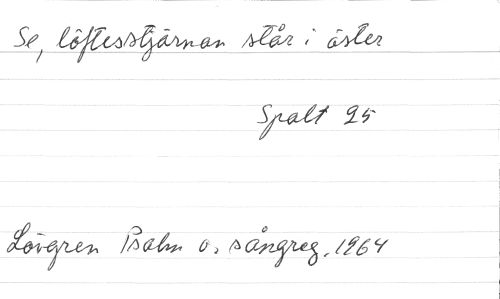 Se, löftesstjärnan står i öster
Spalt 25
Lövgren Psalm o. sångreg. 1964